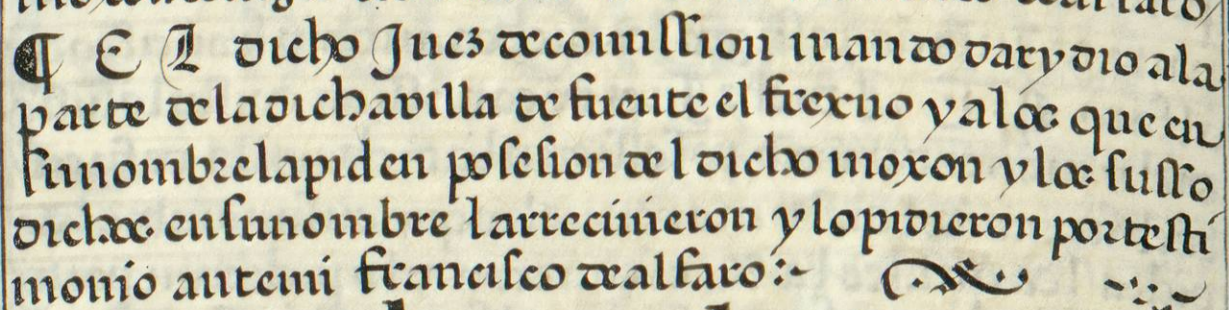 ¶ El dicho Juez de comission mando dar y dio a la
parte de la dicha villa de fuente el frexno y a los que en
su nombre la piden posesion del dicho moxon y los susso
dichos en su nombre la rrecivieron y lo pidieron por testi
monio ante mi francisco de alfaro :~